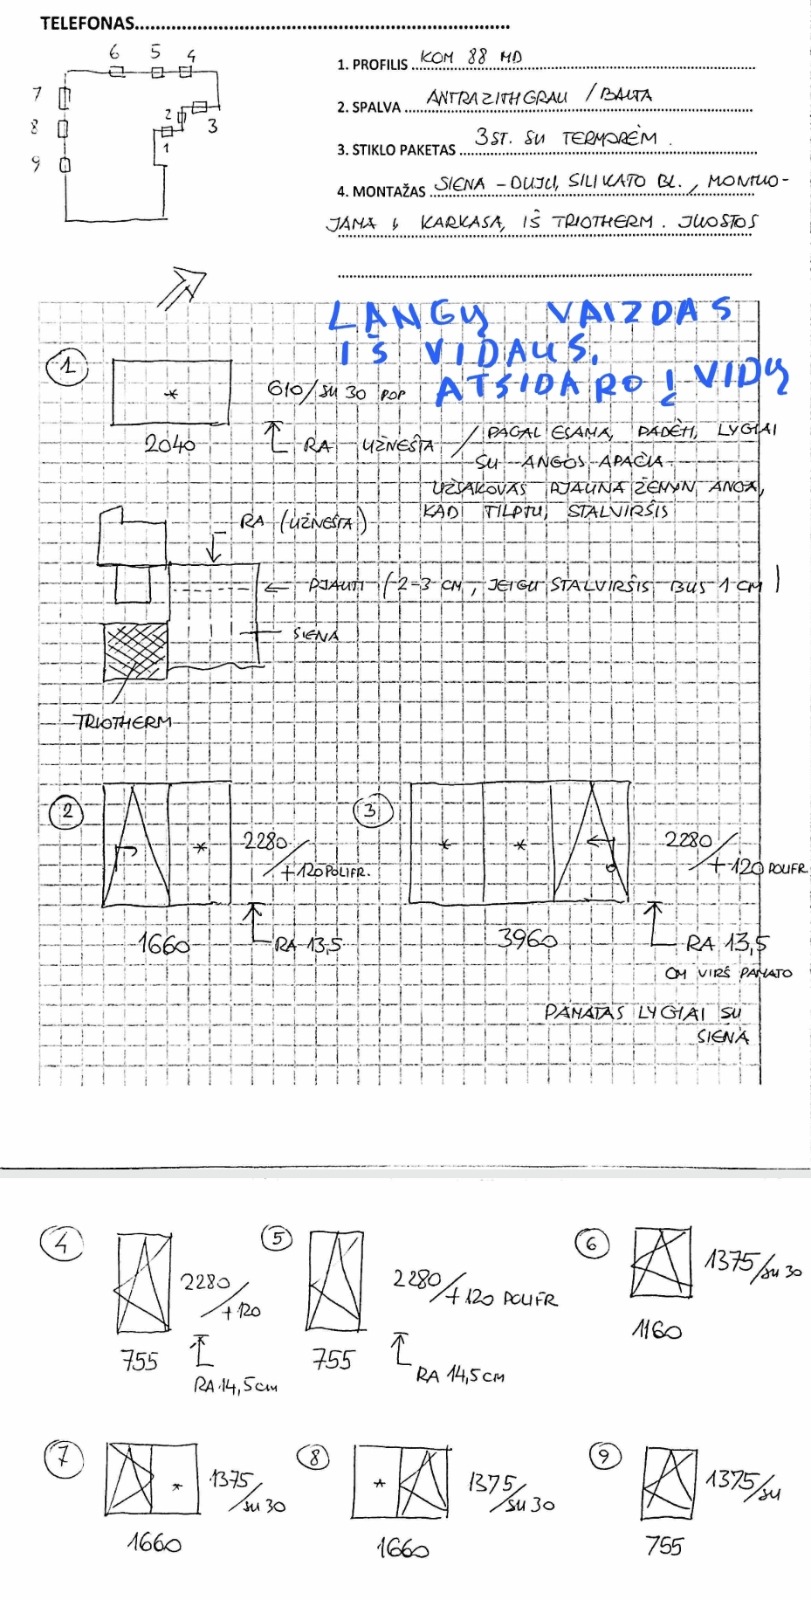 TELEFONAS
6 5 4
7
8
9
2
1
3
1. PROFILIS KOM 88 MD
2. SPALVA ANTRAZITHGRAU / BALTA
3. STIKLO PAKETAS 3 ST. SU TERMORĖM.
4. MONTAŽAS SIENA - DUJŲ, SILIKATO BL., MONTUO-
JAMA Į KARKASĄ, IŠ TRIOTHERM. JUOSTOS
LANGŲ VAIZDAS
IŠ VIDAUS,
ATSIDARO Į VIDŲ
1
*
610/SU 30 POP
2040
RA UŽNEŠTA / PAGAL ESAMĄ, PADĖTĮ, LYGIAI
SU ANGOS APAČIA.
UŽSAKOVAS PJAUNA ŽEMYN ANGĄ,
KAD TILPTŲ STALVIRŠIS
RA (UŽNEŠTA)
PJAUTI (2-3 CM, JEIGU STALVIRŠIS BUS 1 CM)
SIENA
TRIOTHERM
2
*
2280/+120 POLIFR.
1660
RA 13,5
3
* *
2280/+120 POLIFR
3960
RA 13,5
CM VIRŠ PAMATO
PAMATAS LYGIAI SU
SIENA
4
2280/+120
755
RA 14,5 cm
5
2280/+120 POLIFR
755
RA 14,5 cm
6
1375/SU 30
1160
7
*
1375/SU 30
1660
8
*
1375/SU 30
1660
9
1375/SU
755